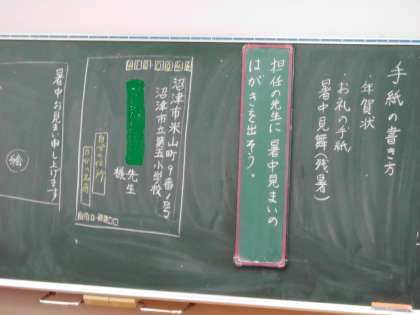 手紙の書き方
・年賀状
・お礼の手紙
・暑中見舞(残暑)
担任の先生に暑中見まいの
はがきを出そう。
沼津市米山町9番1号
沼津市立第五小学校
先生
様
自分の住所
自分の名前
暑中お見まい申し上げます
絵